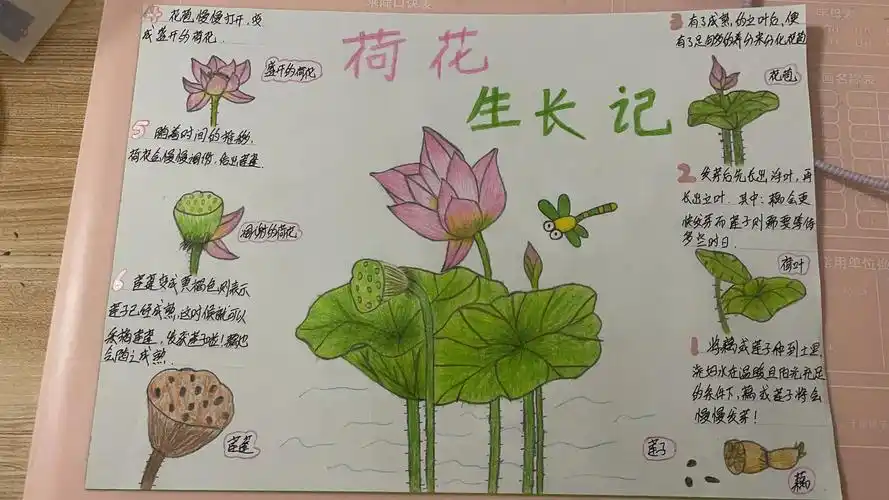 荷花
生长记
1 将藕或莲子种到土里,
浇切水在温暖且阳光充足
的条件下,藕或莲子将会
慢慢发芽!
莲子
藕
2 发芽后先长出浮叶,再
长出立叶.其中:藕会更
快发芽而莲子则需要等待
多些时日.
荷叶
3 有了成熟的立叶后,便
有了足够的养分来分化花苞
花苞
4 花苞慢慢打开,变
成盛开的荷花.
盛开的荷花
5 随着时间的推移,
荷花会慢慢凋谢,结出莲蓬.
凋谢的荷花
6 莲蓬变成黑褐色则表示
莲子已经成熟,这时候就可以
采摘莲蓬,收获莲子啦!藕也
会随之成熟.
莲蓬